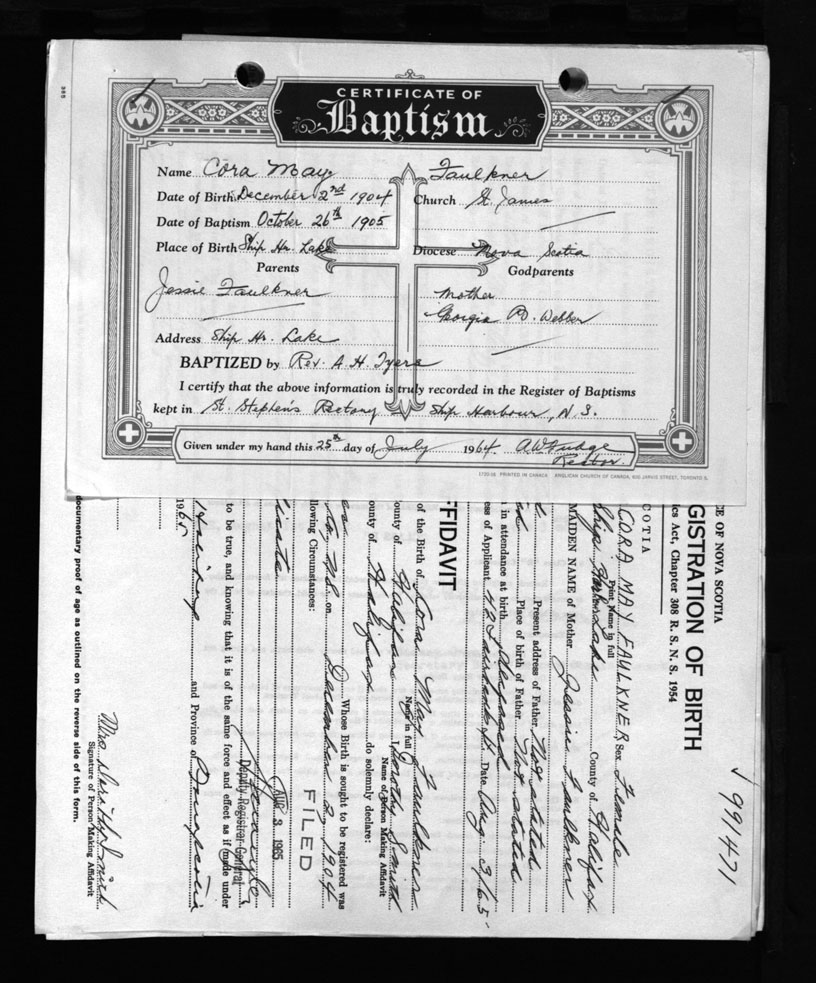 385
CERTIFICATE OF
Baptism
Name Cora May Faulkner
Date of Birth December 2nd 1904 Church St. James
Date of Baptism October 26th 1905
Place of Birth Ship Hr. Lake Diocese Nova Scotia
Parents Godparents
Jessie Faulkner Mother
Georgia B. Webber
Address Ship Hr. Lake
BAPTIZED by Rev. A. H. Tyers
I certify that the above information is truly recorded in the Register of Baptisms
kept in St. Stephen's Rectory Ship Harbour, N.S.
Given under my hand this 25th day of July 1964 A.W. Fudge
Rector.
PRINTED IN CANADA ANGLICAN CHURCH OF CANADA, 600 JARVIS STREET, TORONTO 5.
991471
CE OF NOVA SCOTIA
GISTRATION OF BIRTH
cs Act, Chapter 308 R. S. N. S. 1954
COTIA
CORA MAY FAULKNER Sex Female
Print Name in full
Ship Harbor Lake County of Halifax
MAIDEN NAME of Mother Jessie Faulkner
Present address of Father Not stated
Place of birth of Father Not stated
in attendance at birth
ess of Applicant Date Aug. 3/65
FFIDAVIT
of the Birth of Cora May Faulkner
Name in full
ounty of Halifax I, Dorothy Smith
Name of Person Making Affidavit
ounty of Halifax do solemnly declare:
Whose Birth is sought to be registered was
on December 2, 1904
llowing Circumstances:
FILED
AUG 3 1965
Deputy Registrar General
to be true, and knowing that it is of the same force and effect as if made under
and Province of Nova Scotia
1965
Miss Dorothy Smith
Signature of Person Making Affidavit
documentary proof of age as outlined on the reverse side of this form.